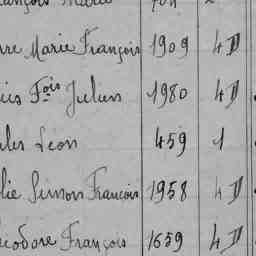 rre Marie François 1909 4 D
cis Fois Julien 1980 4 D
les Léon 459 1
lie Simon François 1958 4 D
éodore François 1659 4 D